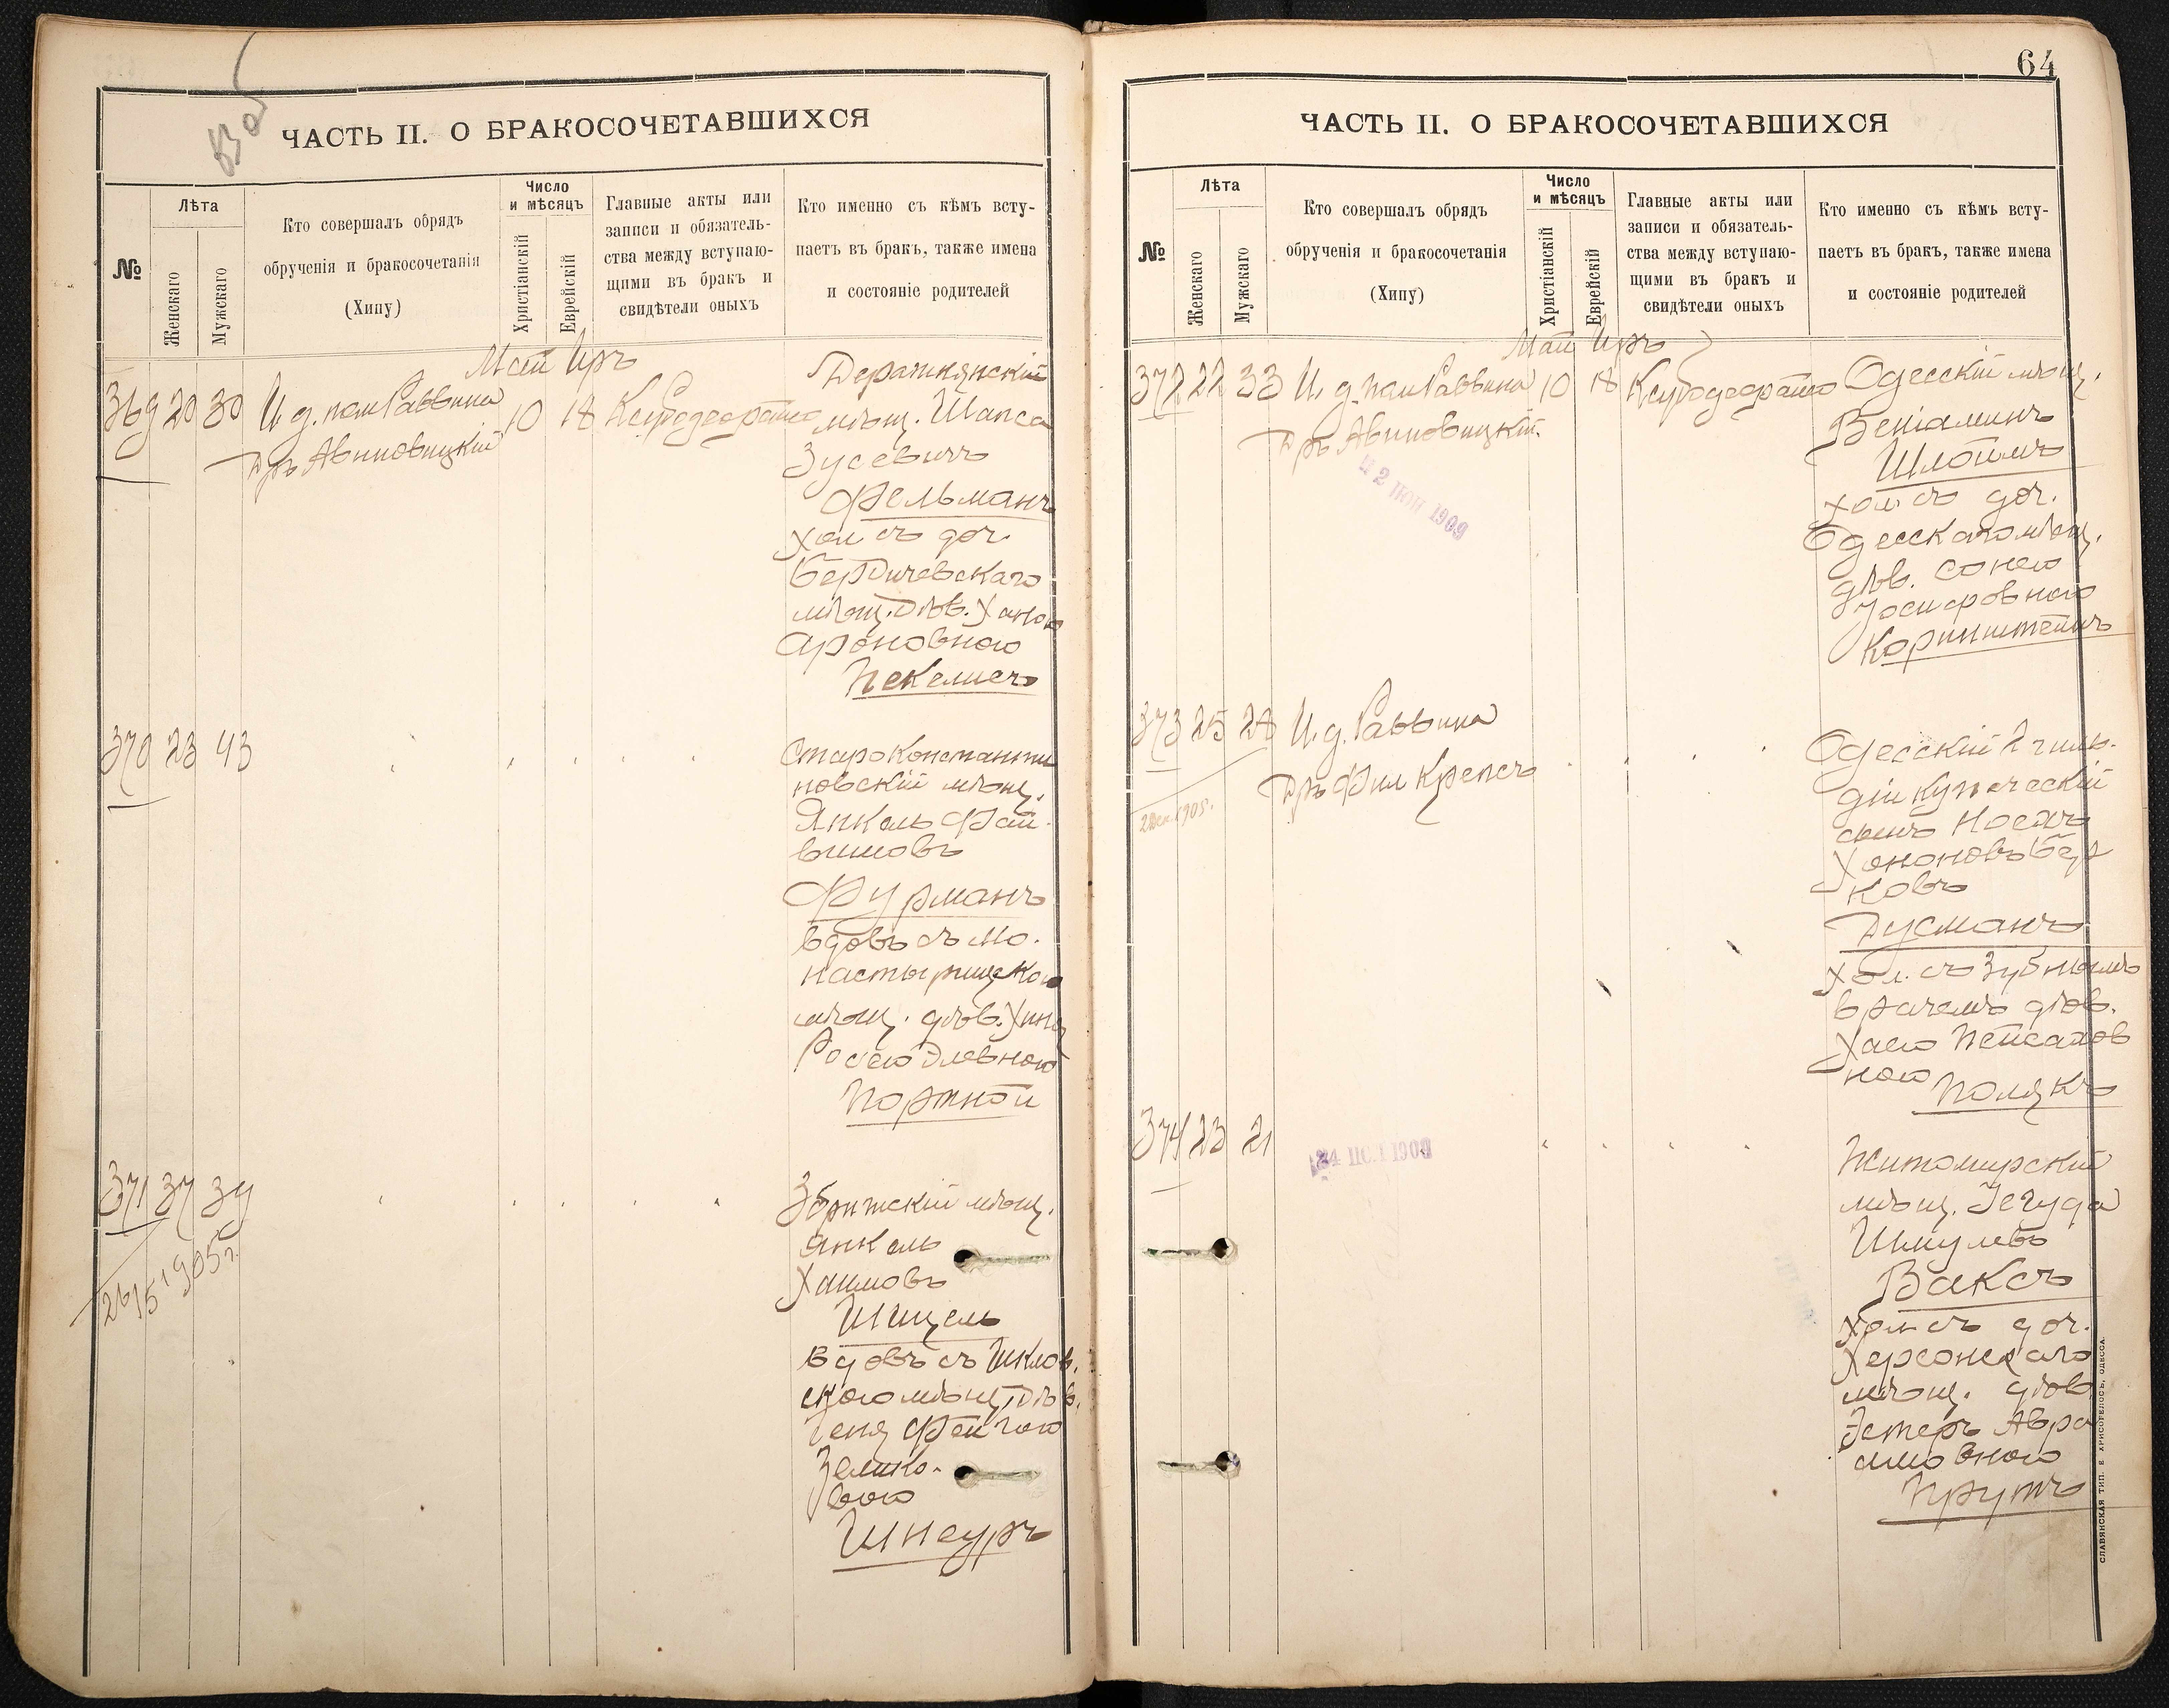 ЧАСТЬ II. О БРАКОСОЧЕТАВШИХСЯ
№
Лѣта
Женскаго
Мужскаго
Кто совершалъ обрядъ
обрученія и бракосочетанія
(Хипу)
Число
и мѣсяцъ
Христіанскій
Еврейскій
Главные акты или
записи и обязатель-
ства между вступаю-
щими въ бракъ и
свидѣтели оныхъ
Кто именно съ кѣмъ всту-
паетъ въ бракъ, также имена
и состояніе родителей
Май Иръ
369 20 30 И. д. пом Раввина
Дръ Авиновицкій
10 18
Деражнянскій
мѣщ. Шапса
Зусевичъ
Фельманъ
хол съ доч.
Бердичевскаго
мѣщ. дѣв. Ханою
Ароновною
Пекелисъ
370 23 43
Староконстанти
новскій мѣщ.
Янкель Фай-
вишовъ
Фурманъ
вдовъ съ Мо-
настырищскою
мѣщ. дѣв. Хиня
Росею Элевною
Портной
371 37 39
26/5 1905 г.
Збрижскій мѣщ.
Янкель
Хаимовъ
Шицель
вдовъ съ Шклов.
скою мѣщ. дѣв.
Геня Фейгою
Зелико-
вою
Шнеуръ
64
ЧАСТЬ II. О БРАКОСОЧЕТАВШИХСЯ
№
Лѣта
Женскаго
Мужскаго
Кто совершалъ обрядъ
обрученія и бракосочетанія
(Хипу)
Число
и мѣсяцъ
Христіанскій
Еврейскій
Главные акты или
записи и обязатель-
ства между вступаю-
щими въ бракъ и
свидѣтели оныхъ
Кто именно съ кѣмъ всту-
паетъ въ бракъ, также имена
и состояніе родителей
Май Иръ
372 22 33 И. д. пом Раввина
Дръ Авиновицкій.
10 18
2 ІЮН 1909
Одесскій мѣщ.
Веніаминъ
Шлоймъ
хол. съ доч.
Одесскаго мѣщ.
дѣв. Сонею
Іосифовною
Коринштейнъ
373 25 28 И. д. Раввина
Дръ Фил Крепсъ
Одесскій 2 гиль-
діи купеческій
сынъ Носонъ
Хононовъ Бер
ковъ
Дусманъ
хол. съ зубнымъ
врачемъ дѣв.
Хаею Пейсахов
ною Полякъ
374 23 21
Житомирскій
мѣщ. Іегуда
Шмулевъ
Ваксъ
хол съ доч.
Херсонскаго
мѣщ. дѣв.
Эстеръ Авра
амовною
Прутъ
СЛАВЯНСКАЯ ТИП. Е. ХРИСОГЕЛОСЪ, ОДЕССА.